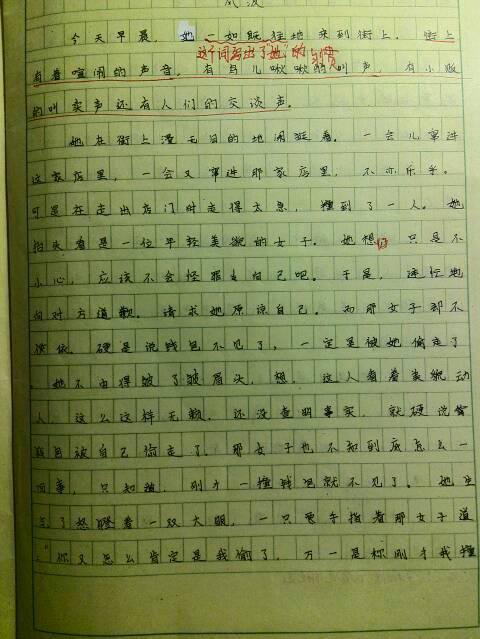 风波
今天早晨，她一如既往地来到街上。街上
这个词写出了"她"的习惯
有着喧闹的声音，有鸟儿啾啾的叫声，有小贩
的叫卖声还有人们的交谈声。
她在街上漫无目的地闲逛着。一会儿窜进
这家店里，一会又窜进那家店里，不亦乐乎。
可是在走出店门时走得太急，撞到了一人。她
抬头看是一位年轻美貌的女子。她想，只是不
小心，应该不会怪罪自己吧。于是，连忙地
向对方道歉。请求她原谅自己。而那女子却不
依，硬是说钱包不见了，一定是被她偷走了
。她不由得皱了皱眉头，想，这人看着美貌动
人，这么这样无赖，还没查明事实，就硬说
包被自己偷走了。那女子也不知到底怎么一
回事，只知道，刚才一撞钱包就不见了。她生
气了怒瞪着一双大眼，一只手指着那女子道
："你又怎么肯定是我偷了，万一是你刚才我撞